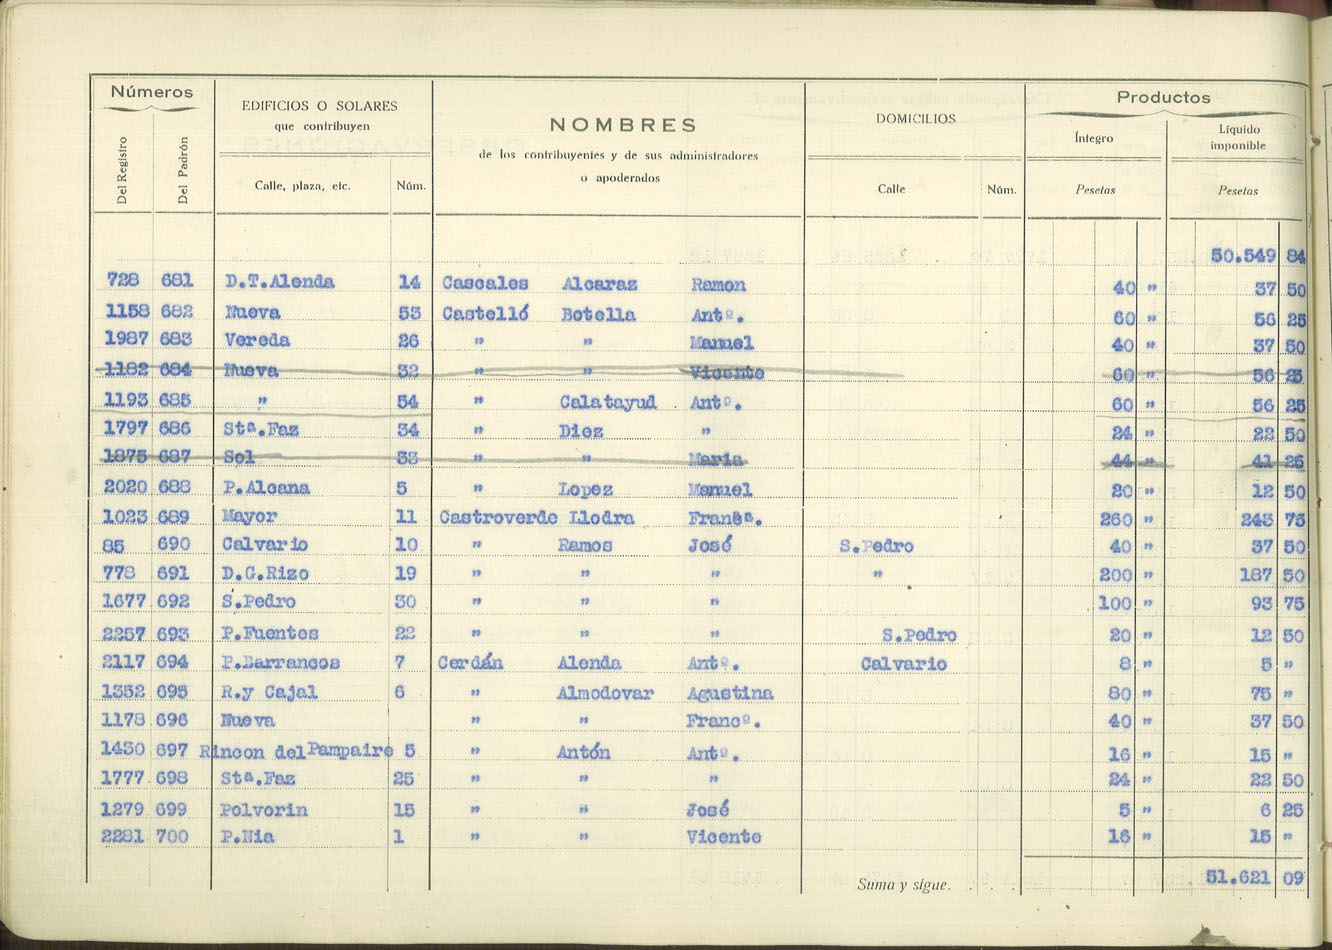 Números
EDIFICIOS O SOLARES
que contribuyen
NOMBRES
de los contribuyentes y de sus administradores
o apoderados
DOMICILIOS
Productos
Íntegro
Líquido
imponible
Del Registro Del Padrón Calle, plaza, etc. Núm. Calle Núm. Pesetas Pesetas
50.549 84
728 681 D.T.Alenda 14 Cascales Alcaraz Ramon 40 " 37 50
1158 682 Nueva 53 Castelló Botella Antº. 60 " 56 25
1987 683 Vereda 26 " " Manuel 40 " 37 50
1182 684 Nueva 32 " " Vicente 60 " 56 25
1193 685 " 54 " Calatayud Antº. 60 " 56 25
1797 686 Stª.Faz 34 " Diez " 24 " 22 50
1875 687 Sol 33 " " Maria 44 " 41 25
2020 688 P.Alcana 5 " Lopez Manuel 20 " 12 50
1023 689 Mayor 11 Castroverde Llodra Franªª. 260 " 243 75
85 690 Calvario 10 " Ramos José S.Pedro 40 " 37 50
778 691 D.G.Rizo 19 " " " " 200 " 187 50
1677 692 S.Pedro 30 " " " 100 " 93 75
2257 693 P.Fuentes 22 " " " S.Pedro 20 " 12 50
2117 694 P.Barrancos 7 Cerdán Alenda Antº. Calvario 8 " 5 "
1352 695 R.y Cajal 6 " Almodovar Agustina 80 " 75 "
1178 696 Nueva " " Francº. 40 " 37 50
1430 697 Rincon del Pampairo 5 " Antón Antº. 16 " 15 "
1777 698 Stª.Faz 25 " " " 24 " 22 50
1279 699 Polvorin 15 " " José 5 " 6 25
2281 700 P.Nia 1 " " Vicente 16 " 15 "
Suma y sigue. 51.621 09